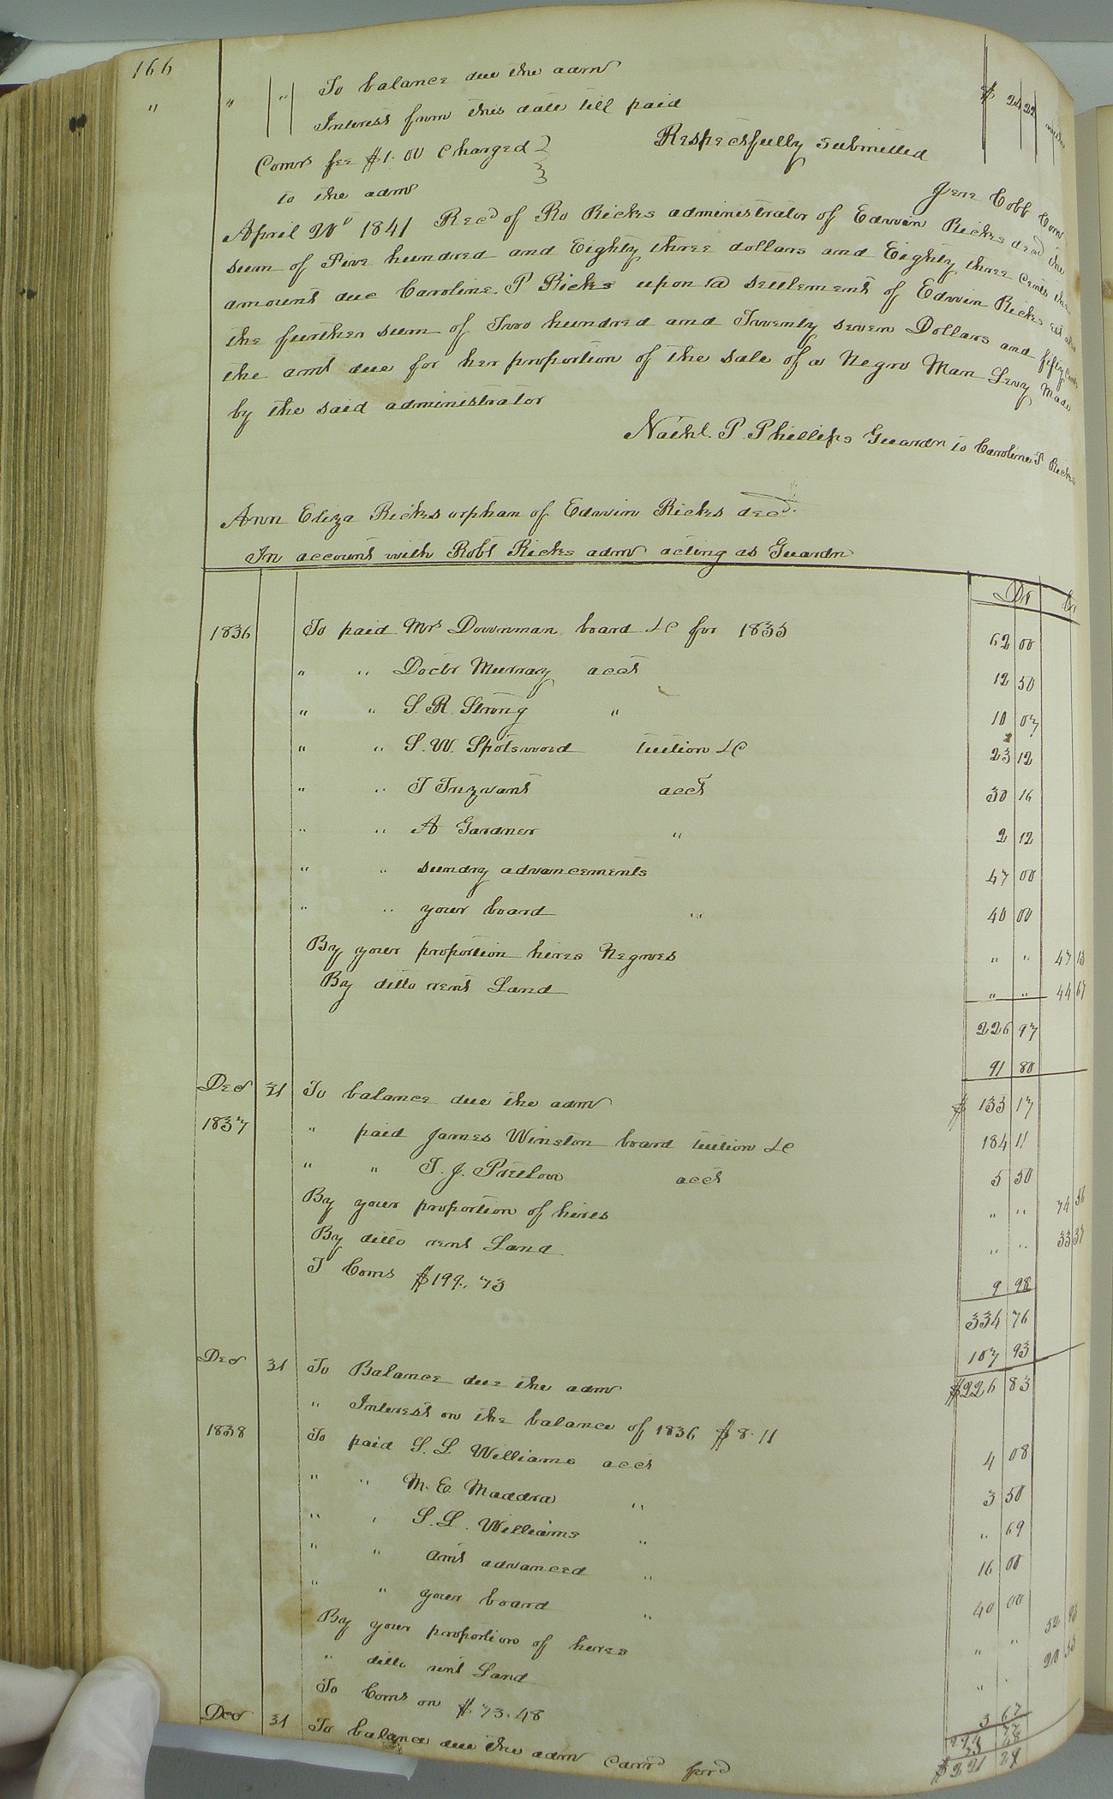 166
" " " To balance due the admr $ 2422
Interest from this date till paid
Comrs fee $1.00 Charged } Respectfully submitted
to the admr
Jere Cobb Comr
April 20th 1841 Recd of Ro Ricks administrator of Edwin Ricks decd the
sum of Five hundred and Eighty three dollars and Eighty three Cents the
amount due Caroline P Ricks upon a settlement of Edwin Ricks est also
the further sum of Two hundred and Twenty seven Dollars and fifty Cents
the amt due for her proportion of the sale of a Negro Man Levy Made
by the said administrator
Nathl. P. Phillips Guardn to Caroline P Ricks
Ann Eliza Ricks orphan of Edwin Ricks decd.
In account with Robt Ricks admr acting as Guardn
Dr Cr
1836 To paid Mrs Downman board &C for 1835 62 00
" " Doctr Murray acct 12 50
" " S. R. Strong " 10 07
" " S. W. Spotswood tuition &C 23 12
" " T Trezvant acct 30 16
" " A Gardner " 2 12
" " sundry advancements 47 00
" " your board " 40 00
By your proportion hires Negroes " " 47 13
By ditto rent Land " " 44 67
226 97
91 80
Decr 31 To balance due the admr $ 135 17
1837 " paid James Winston board tuition &C 184 11
" " T. J. Pretlow acct 5 50
By your proportion of hires " " 74 56
By ditto rent Land " " 33 37
T Coms $199.73 9 98
334 76
107 93
Decr 31 To Balance due the admr $226 83
" Interest on the balance of 1836 $8.11
1838 To paid S. L. Williams acct 4 08
" " M. E. Maddra " 3 50
" " S. L. Williams " " 69
" " amt advanced " 16 00
" " your board " 40 00
By your proportion of hires " "
" ditto rent Land " "
To Coms on $.73.48 3 67
Decr 31 To balance due the admr carrd forrd $221 29